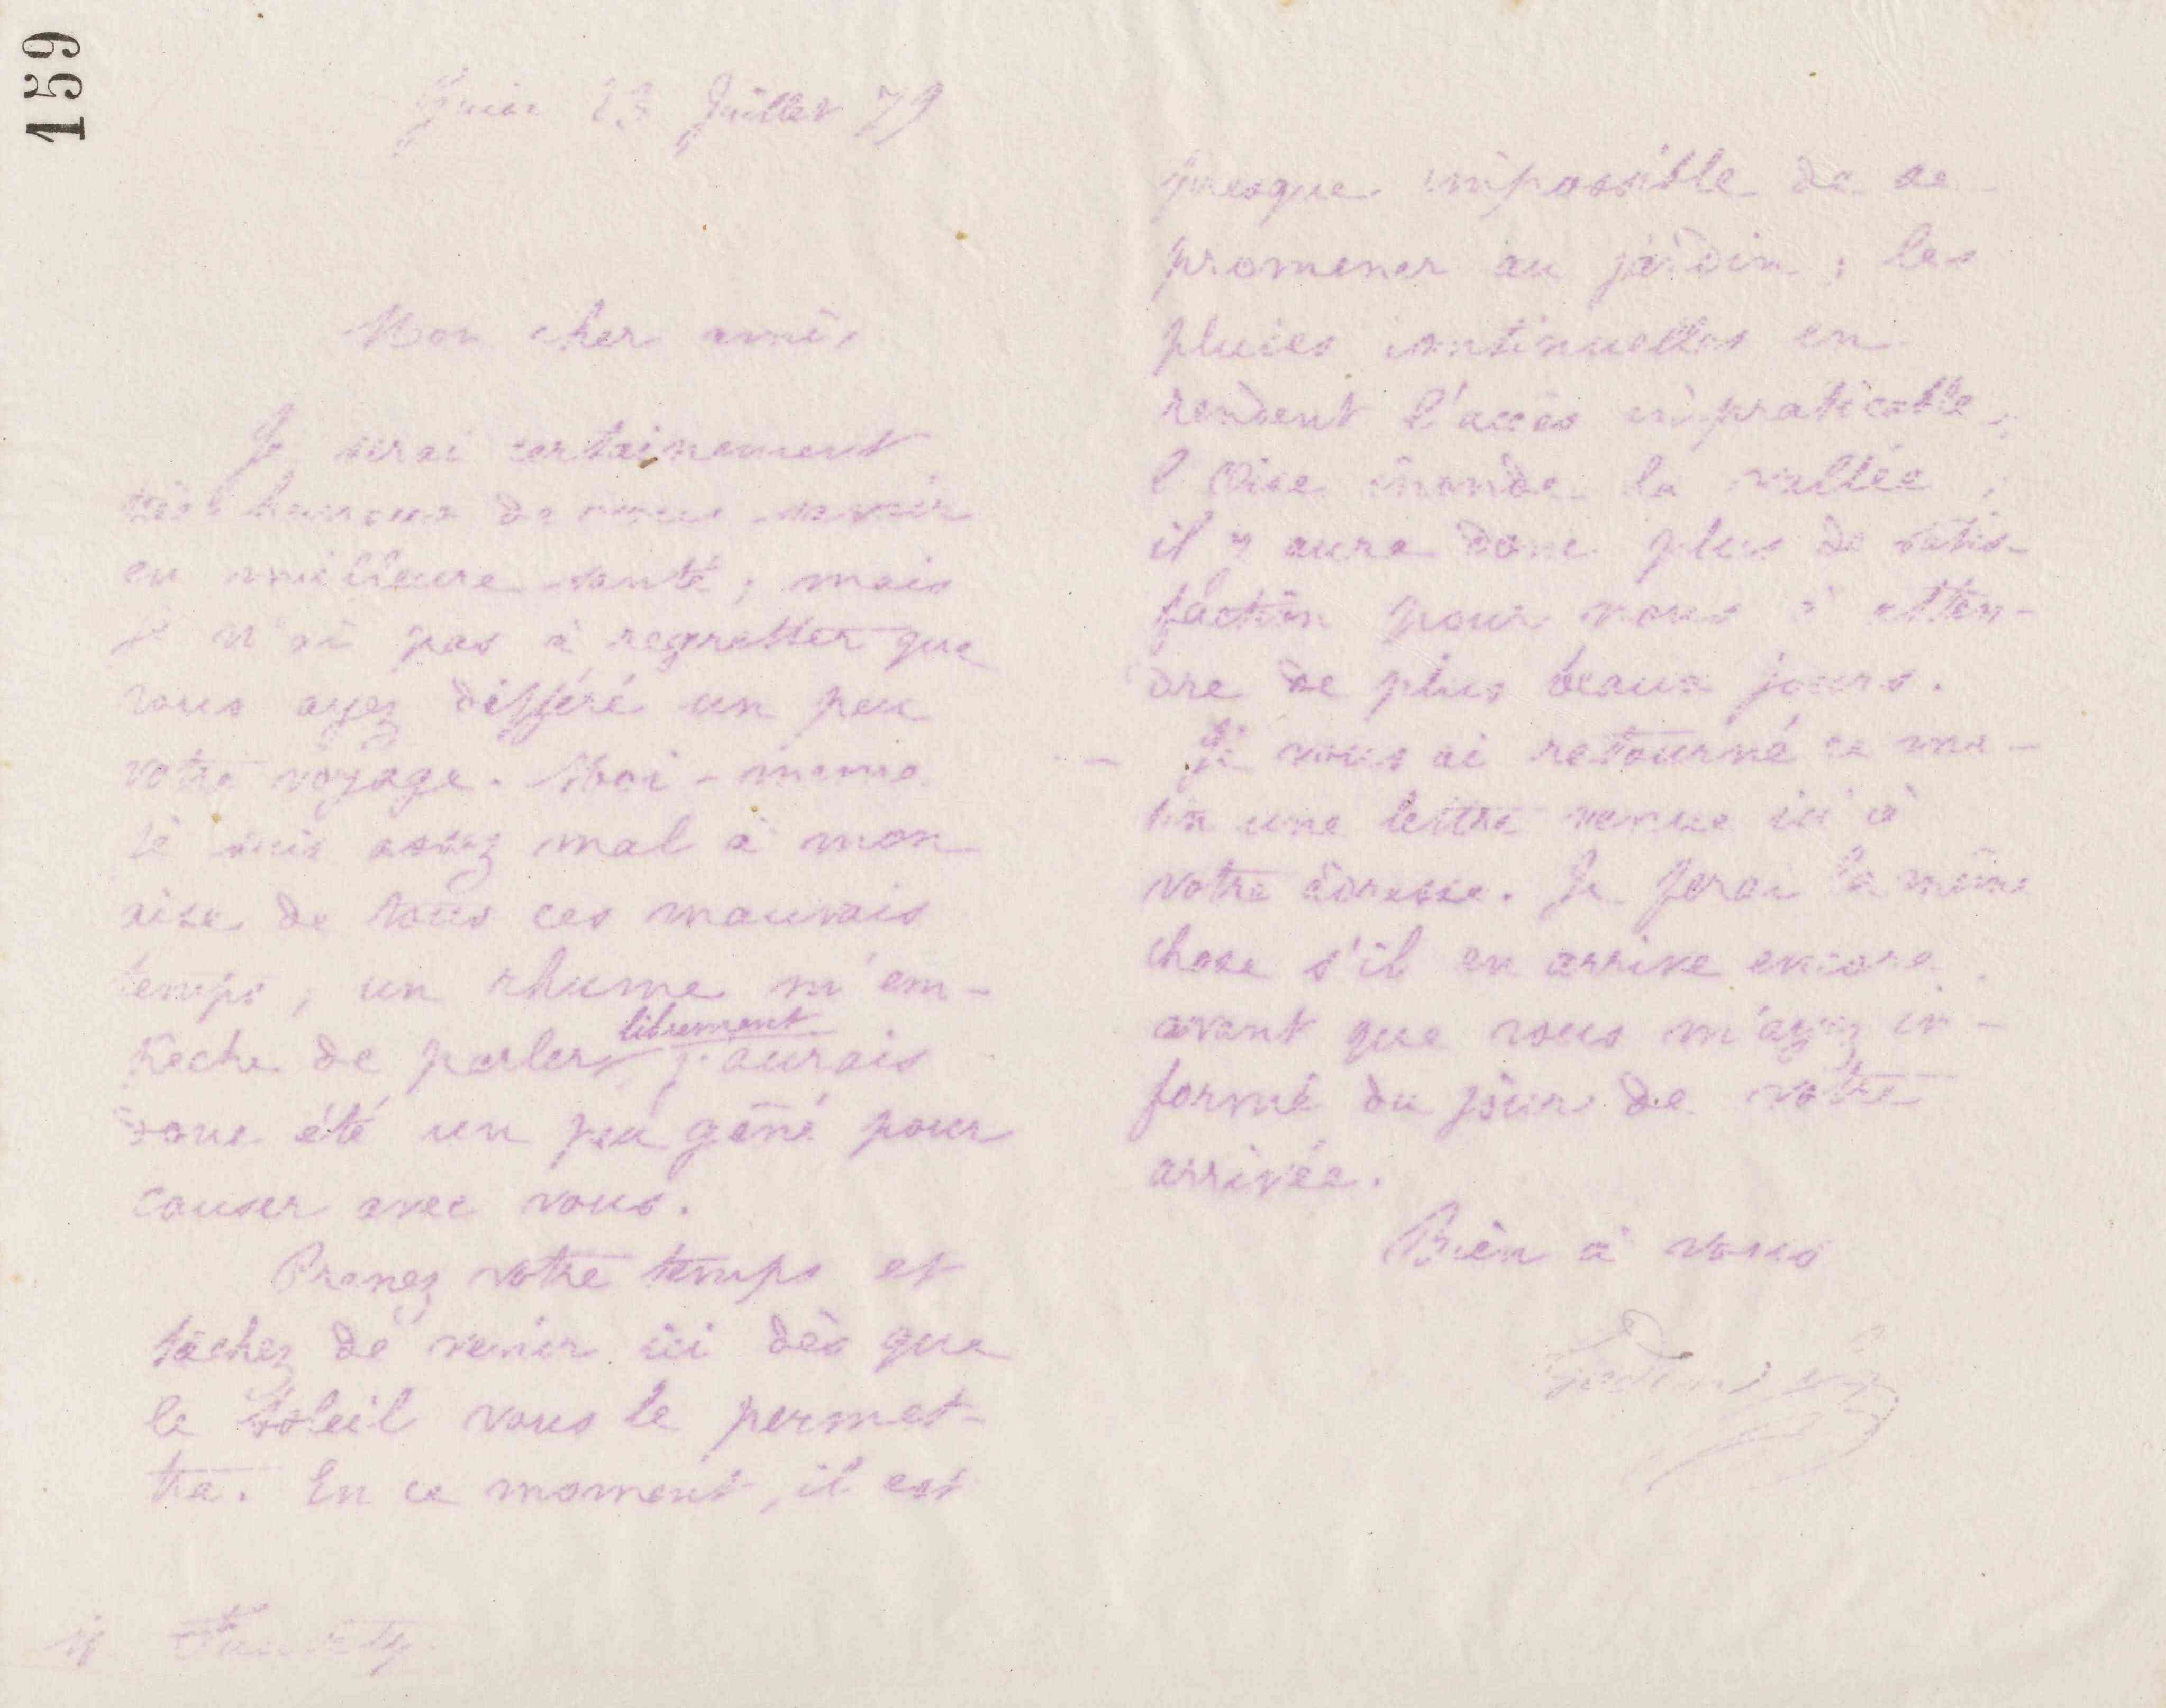 159
Guise 23 Juillet 79
Mon cher ami,
Je serai certainement
très heureux de vous savoir
en meilleure santé ; mais
je n'ai pas à regretter que
vous ayez différé un peu
votre voyage. Moi-même
je suis assez mal à mon
aise de tous ces mauvais
temps, un rhume m'em-
pêche de parler librement, j'aurais
donc été un peu gêné pour
causer avec vous.
Prenez votre temps et
tâchez de venir ici dès que
le soleil vous le permet-
tra. En ce moment, il est
Mr Fauvety
presque impossible de se
promener au jardin ; les
pluies continuelles en
rendent l'accès impraticable,
l'Oise inonde la vallée ;
il y aura donc plus de satis-
faction pour vous à atten-
dre de plus beaux jours.
Je vous ai retourné ce ma-
tin une lettre venue ici à
votre adresse. Je ferai la même
chose s'il en arrive encore
avant que vous m'ayez in-
formé du jour de votre
arrivée.
Bien à vous
Godin